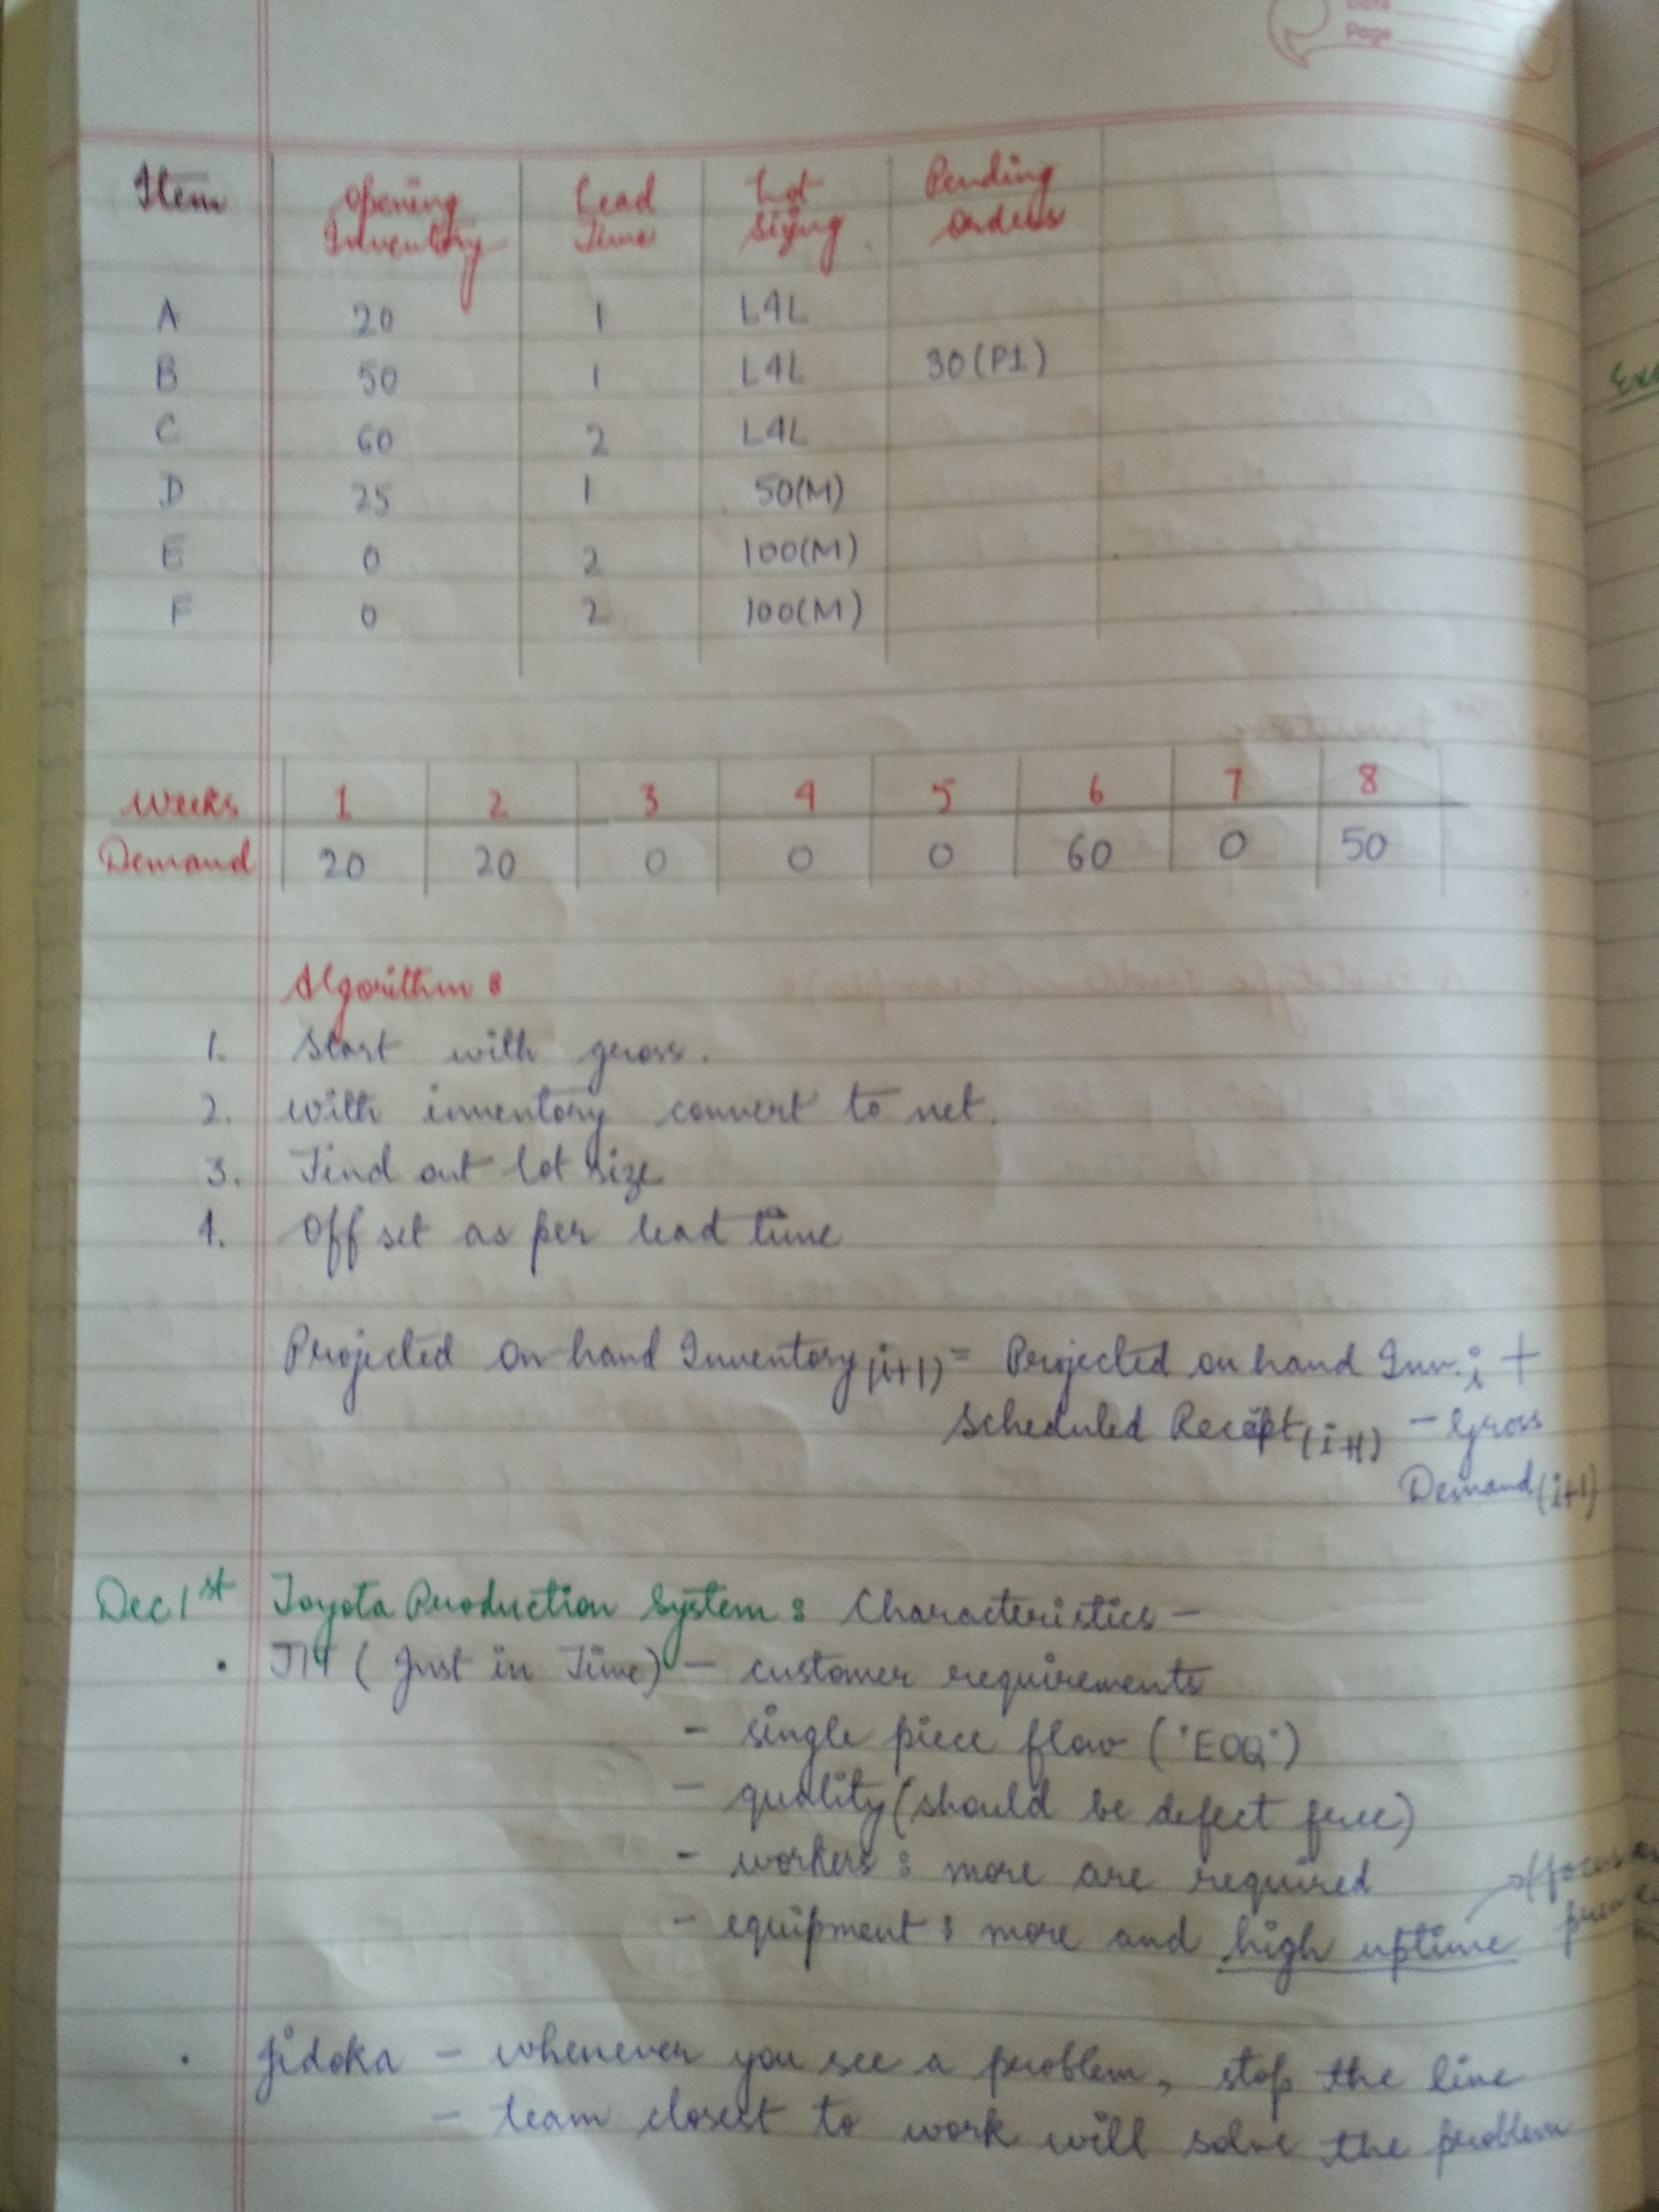 Date
Page
Item Opening Inventory Lead Time Lot Sizing Pending Orders
A 20 1 L4L
B 50 1 L4L 30(P1)
C 60 2 L4L
D 25 1 50(M)
E 0 2 100(M)
F 0 2 100(M)
Weeks 1 2 3 4 5 6 7 8
Demand 20 20 0 0 0 60 0 50
Algorithm :
1. Start with gross.
2. With inventory convert to net.
3. Find out lot size
4. Off set as per lead time
Projected On hand Inventory(i+1) = Projected on hand Inv.i +
Scheduled Receipt(i+1) - Gross
Demand(i+1)
Dec 1st Toyota Production System : Characteristics -
• JIT (Just in Time) - customer requirements
- single piece flow ("EOQ")
- quality (should be defect free)
- workers : more are required
- equipment : more and high uptime
• Jidoka - whenever you see a problem, stop the line
- team closest to work will solve the problem